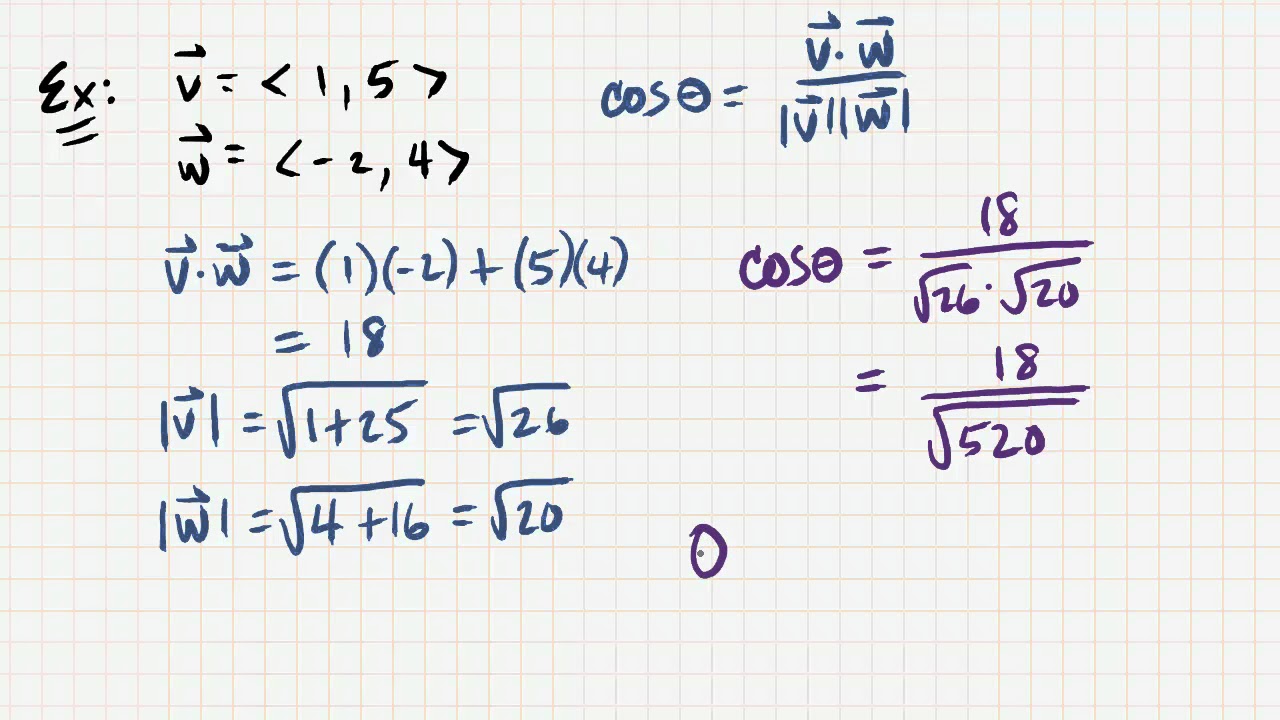 Ex: v⃗ = < 1, 5 >
w⃗ = < -2, 4 >
cosθ = v⃗ · w⃗ / |v⃗||w⃗|
v⃗ · w⃗ = (1)(-2) + (5)(4)
= 18
|v⃗| = √(1+25) = √26
|w⃗| = √(4+16) = √20
cosθ = 18 / √26 · √20
= 18 / √520
0